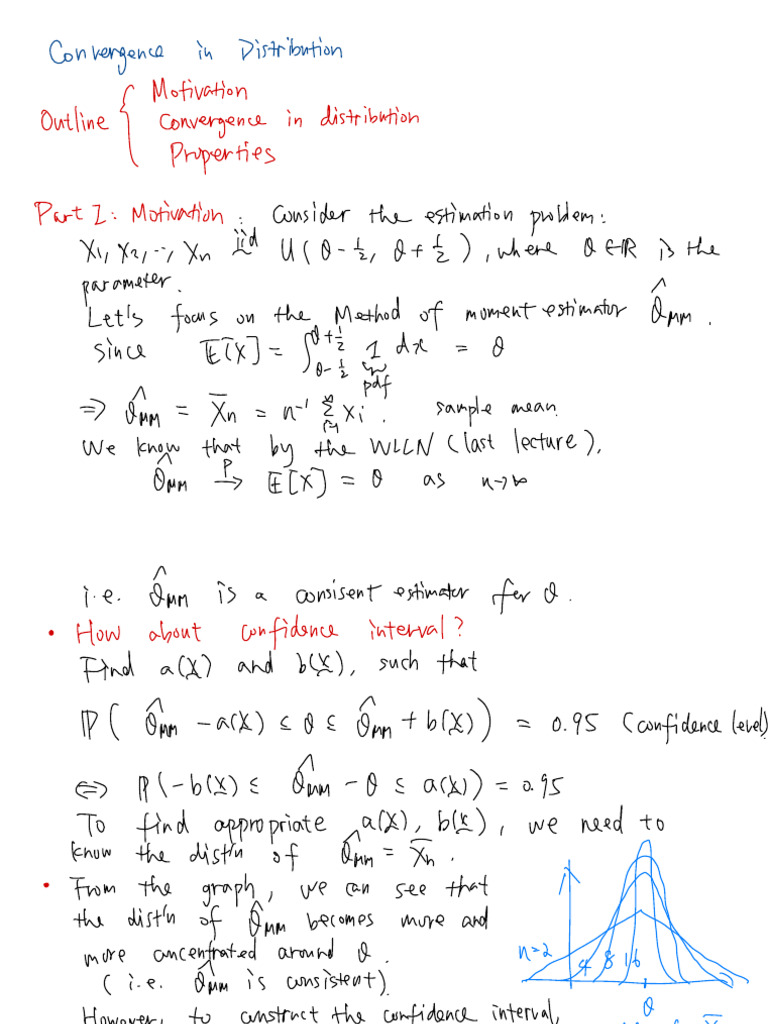 Convergence in Distribution
Outline { Motivation
Convergence in distribution
Properties
Part I: Motivation: Consider the estimation problem:
X₁, X₂, ..., Xₙ iid~ U(θ-½, θ+½), where θ∈ℝ is the
parameter.
Let's focus on the Method of moment estimator θ̂_MM.
since E[X] = ∫_{θ-½}^{θ+½} 1 dx = θ
pdf
⇒ θ̂_MM = X̄ₙ = n⁻¹ Σ_{i=1}^{n} Xᵢ. sample mean
We know that by the WLLN (last lecture),
θ̂_MM →ᴾ E[X] = θ as n→∞
i.e. θ̂_MM is a consisent estimator for θ.
• How about confidence interval?
Find a(X) and b(X), such that
ℙ( θ̂_MM - a(X) ≤ θ ≤ θ̂_MM + b(X)) = 0.95 (confidence level)
⇔ ℙ(-b(X) ≤ θ̂_MM - θ ≤ a(X)) = 0.95
To find appropriate a(X), b(X), we need to
know the dist'n of θ̂_MM = X̄ₙ.
• From the graph, we can see that
the dist'n of θ̂_MM becomes more and
more concentrated around θ.
(i.e. θ̂_MM is consistent).
However, to construct the confidence interval,
n=2 4 8 16
θ